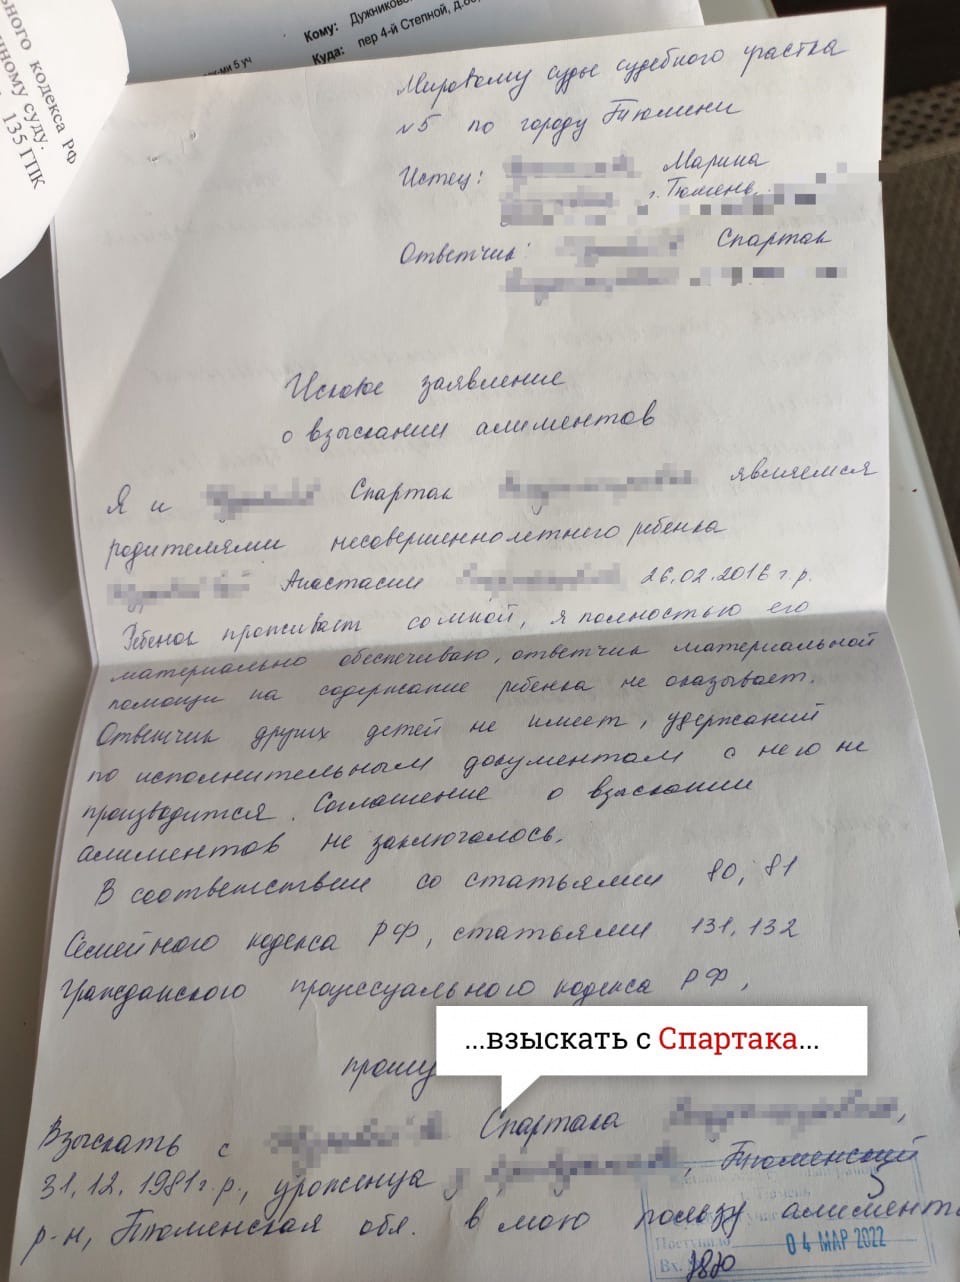 ьного кодекса РФ
нному суду.
135 ГПК
ми 5 уч
Кому: Дужников
Куда: пер 4-й Степной, д.
Мировому судье судебного участка
№5 по городу Тюмени
Истец: Марина
г. Тюмень,
Ответчик: Спартак
Исковое заявление
о взыскании алиментов
Я и Спартак являемся
родителями несовершеннолетнего ребенка
Анастасии 26.02.2016 г.р.
Ребенок проживает со мной, я полностью его
материально обеспечиваю, ответчик материальной
помощи на содержание ребенка не оказывает.
Ответчик других детей не имеет, удержаний
по исполнительным документам с него не
производится. Соглашение о взыскании
алиментов не заключалось.
В соответствии со статьями 80, 81
Семейного кодекса РФ, статьями 131, 132
Гражданского процессуального кодекса РФ,
...взыскать с Спартака...
прошу
Взыскать с Спартака ,
31.12.1981 г.р., уроженца , Тюменский
р-н, Тюменская обл. в мою пользу алименты
г. Тюмень
Поступило 04 МАР 2022
Вх.